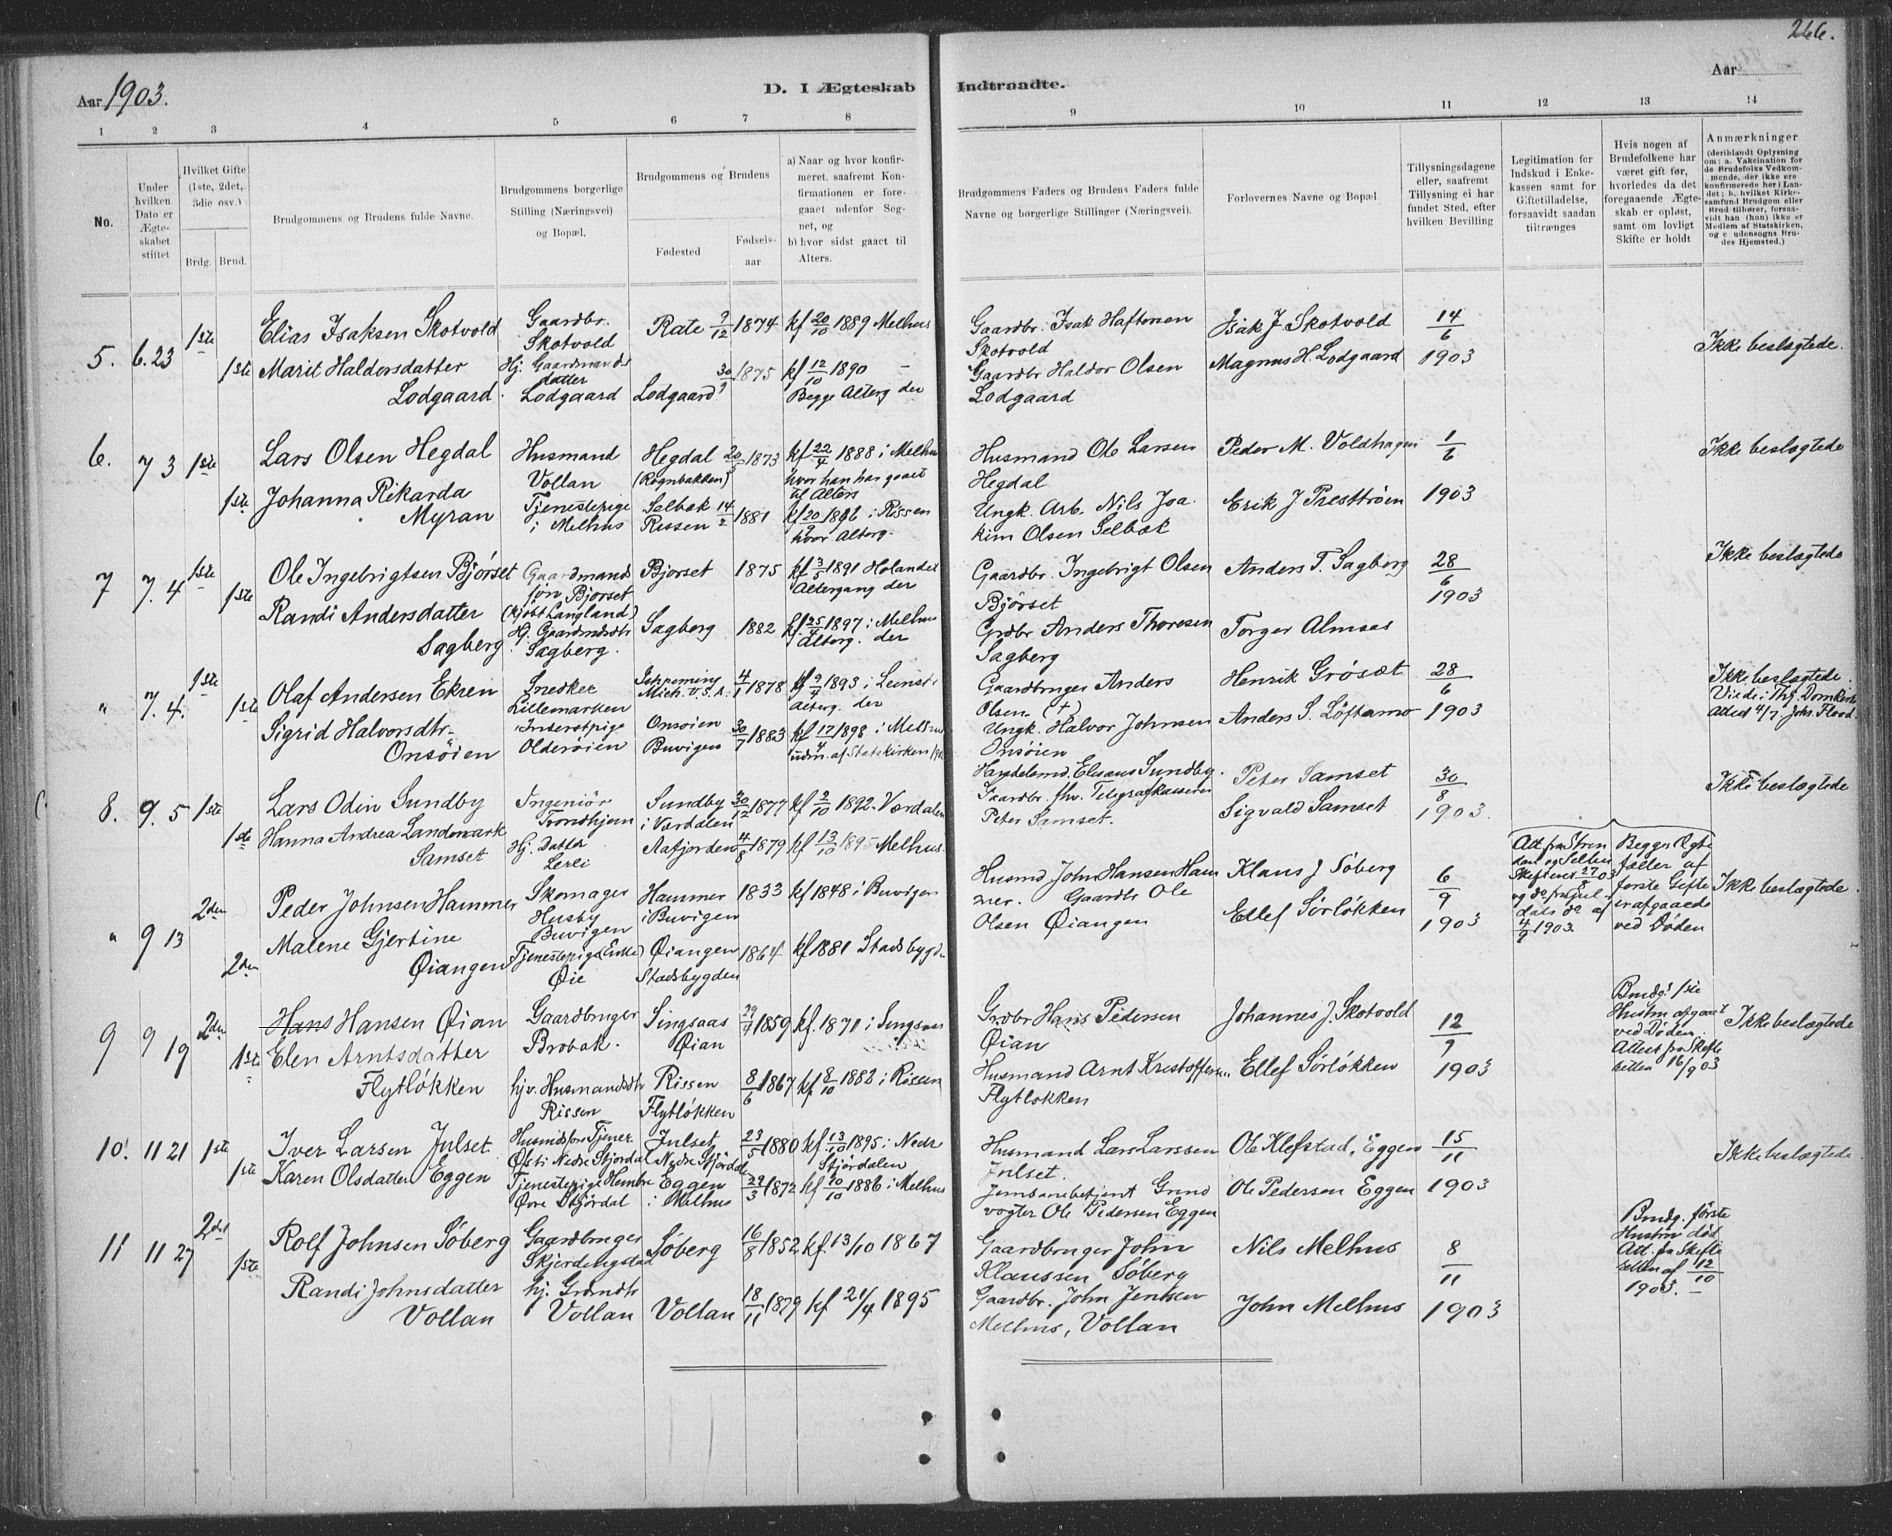 266.
Aar 1903.
D. I Ægteskab Indtraadte.
Aar
1 2 3 4 5 6 7 8 9 10 11 12 13 14
No.
Under hvilken Dato er Ægteskabet stiftet
Hvilket Gifte (1ste, 2det, 3die osv.)
Brdg. Brud.
Brudgommens og Brudens fulde Navne.
Brudgommens borgerlige Stilling (Næringsvei) og Bopæl.
Brudgommens og Brudens
Fødested
Fødselsaar
a) Naar og hvor konfirmeret, saafremt Konfirmationen er foregaaet udenfor Sognet, og
b) hvor sidst gaaet til Alters.
Brudgommens Faders og Brudens Faders fulde Navne og borgerlige Stillinger (Næringsvei).
Forlovernes Navne og Bopæl
Tillysningsdagene eller, saafremt Tillysning ei har fundet Sted, efter hvilken Bevilling
Legitimation for Indskud i Enkekassen samt for Giftetilladelse, forsaavidt saadan tiltrænges
Hvis nogen af Brudefolkene har været gift før, hvorledes da det foregaaende Ægteskab er opløst, samt om lovligt Skifte er holdt
Anmærkninger
(deriblandt Oplysning om: a. Vakcination for de Brudefolks Vedkommende, der ikke ere konfirmerede her i Landet; b. hvilket Kirkesamfund Brudgom eller Brud tilhører, forsaavidt han (hun) ikke er Medlem af Statskirken, og c. udensogns Brudes Hjemsted.)
5. 6. 23 1ste Elias Isaksen Skotvold Gaardbr. Skotvold Rate 9/12 1874 kf 20/10 1889 Melhus Gaardbr. Isak Haftorsen Skotvold Isak J Skotvold 14/6 1903 Ikke beslægtede
1ste Marit Haldorsdatter Lodgaard Hj. Gaardmands datter Lodgaard Lodgaard 30/9 1875 kf 12/10 1890 Begge Alterg der Gaardbr Haldor Olsen Lodgaard Magnus H. Lodgaard
6. 7 3 1ste Lars Olsen Hegdal Husmand Vollan Hegdal (Rognbakken) 1873 kf 22/4 1888 i Melhus hvor han har gaaet til Alters Husmand Ole Larsen Hegdal Peder M. Voldhagen 1/6 1903 Ikke beslægtede
1ste Johanna Rikarda Myran Tjenestepige i Melhus Selbæk Rissen 14/2 1881 i Rissen hvor Alterg. Ungk. Arb. Nils Joakim Olsen Selbæk Erik J Presttrøen
7 7. 4 1ste Ole Ingebrigtsen Bjørset Gaardmands søn Bjørset (kjøbt Langland) Bjorset 1875 kf 3/5 1891 Holandet Altergang der Gaardbr. Ingebrigt Olsen Bjørset Anders T. Sagberg 28/6 1903 Ikke beslægtede
1ste Randi Andersdatter Sagberg Hj. Gaardmdsdtr Sagberg. Sagberg 1882 kf. 25/4 1897 i Melhus Alterg. der Grdbr Anders Thoresen Sagberg Torger Almaas
" 7. 4. 1ste Olaf Andersen Ekren Snedker Lillemarken Ishpeming Mich. U.S.A. 4/1 1878 kf 9/4 1893 i Leinstr. Alterg. der Gaardbruger Anders Olsen (†) Henrik Grøsæt 28/6 1903 Ikke beslægtede. Viede i Thj. Domkirke Attest 4/7 Johs. Flood
1ste Sigrid Halvorsdtr. Onsöien Olderöien Onsöien Buvigen 30/7 1883 kf 17/4 1898 i Melhus udm. af Statskirken Ungk. Halvor Johnsen Onsöien Anders S. Løftamo
8. 9. 5 1ste Lars Odin Sundby Ingeniör Trondhjem Sundby i Værdalen 30/12 1877 kf 2/10 1892. Værdalen Handelsmd. Elisæus Sundby. Peter Samset 30/8 1903. Ikke beslægtede
1ste Hanna Andrea Landmark Samset Hj. Datter Lerli Aafjorden 4/8 1879 kf 13/10 1895 Melhus. Gaardbr. fhv. Telegrafkasserer Peter Samset. Sigvald Samset
" 9 13 2den Peder Johnsen Hammer Skomager Husby Buvigen Hammer i Buvigen 1833 kf 1848 i Buvigen Husmd John Hansen Hammer. Klaus J Søberg 6/9 1903 Att fra Strinden og Selbu Skifteret 27/8 03 og do fra af 4/9 1903. Begges Ægtefæller af første Gifte er afgaaede ved Døden Ikke beslægtede
2den Malene Gjertine Øiangen Tjenestepige (Enke) Øie Øiangen Stadsbygden 1864 kf 1881 Stadsbygdn Gaardbr Ole Olsen Øiangen Ellef Sørløkken
9 9 19 2den Hans Hansen Øian Gaardbruger Brobak. Singsaas Øian 29/4 1859 kf. 1871 i Singsaas Grdbr Hans Pedersen Øian Johannes J. Skotvold 12/9 1903 Brudg.s 1ste Hustru afgaaet ved Døden. Attest fra Skifteretten 16/9 03 Ikke beslægtede
1ste Elen Arntsdatter Flytløkken hjv. Husmandsdtr Rissen Rissen Flytløkken 8/6 1867 kf 8/10 1882 i Rissen Husmand Arnt Kristoffersen Flytlokken Ellef Sørløkken
10. 11 21 1ste Iver Larsen Julset. Husmdssøn Tjener Østi Nedre Stjørdal Julset Nedre Stjördal 23/5 1880 kf. 13/10 1895 i Nedr Stjördalen Husmand Lars Larssen Julset. Ole Klefstad, Eggen 15/11 1903 Ikke beslægtede.
1ste Karen Olsdatter Eggen Tjenestepige Hembre Øvre Stjørdal Eggen i Melhus 29/3 1872 kf 20/10 1886 i Melhus Jernbanebetjent Grindvogter Ole Pedersen Eggen Ole Pedersen Eggen
11 11 27 2det Rolf Johnsen Søberg Gaardbruger Skjerdingstad Søberg 16/8 1852 kf. 13/10 1867 Gaardbruger John Klaussen Søberg Nils Melhus 8/11 1903 Brudg. første Hustru død Att. fra Skifteretten af 12/10 1903. –
1ste Randi Johnsdatter Vollan hj. Grdmdtr Vollan Vollan 18/11 1879 kf 21/4 1895 Gaardbr. John Jentsen Melhus, Vollan John Melhus